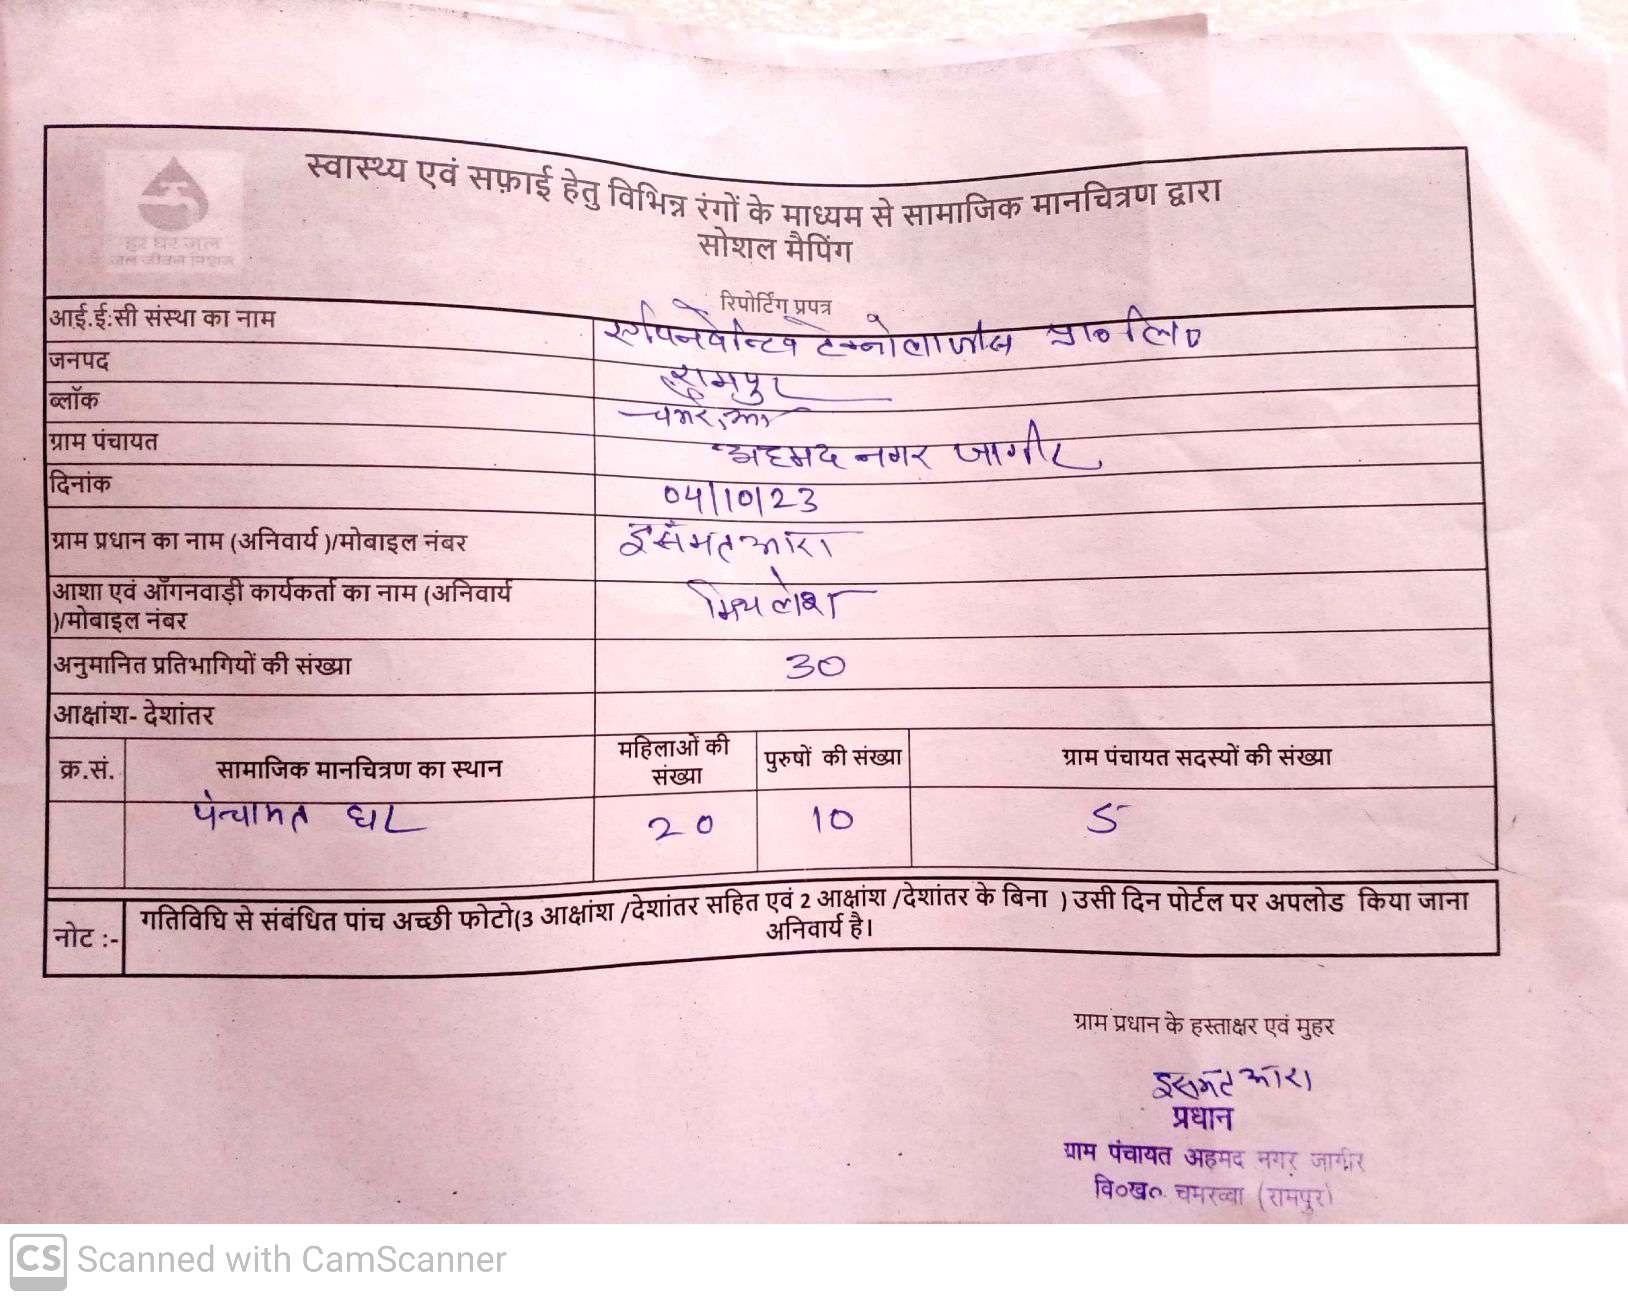 हर घर जल
जल जीवन मिशन
स्वास्थ्य एवं सफ़ाई हेतु विभिन्न रंगों के माध्यम से सामाजिक मानचित्रण द्वारा
सोशल मैपिंग
रिपोर्टिंग प्रपत्र
आई.ई.सी संस्था का नाम टेक्नोलाजीस प्रा० लि०
जनपद रामपुर
ब्लॉक
ग्राम पंचायत अहमद नगर जागीर
दिनांक 04/10/23
ग्राम प्रधान का नाम (अनिवार्य )/मोबाइल नंबर इसमत आरा
आशा एवं आँगनवाड़ी कार्यकर्ता का नाम (अनिवार्य
)/मोबाइल नंबर मिथलेश
अनुमानित प्रतिभागियों की संख्या 30
आक्षांश- देशांतर
क्र.सं. सामाजिक मानचित्रण का स्थान महिलाओं की संख्या पुरुषों की संख्या ग्राम पंचायत सदस्यों की संख्या
पंचायत घर 20 10 5
नोट :- गतिविधि से संबंधित पांच अच्छी फोटो(3 आक्षांश /देशांतर सहित एवं 2 आक्षांश /देशांतर के बिना ) उसी दिन पोर्टल पर अपलोड किया जाना
अनिवार्य है।
ग्राम प्रधान के हस्ताक्षर एवं मुहर
इसमत आरा
प्रधान
ग्राम पंचायत अहमद नगर जागीर
वि०ख० चमरव्वा (रामपुर)
CS Scanned with CamScanner